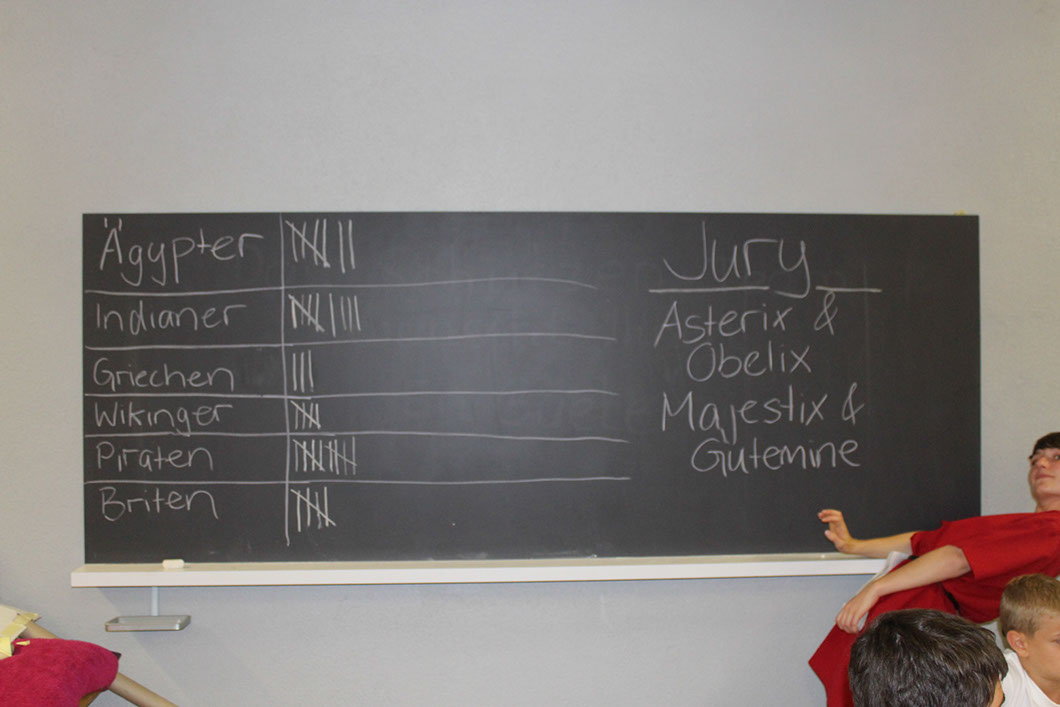 Ägypter
Indianer
Griechen
Wikinger
Piraten
Briten
Jury
Asterix &
Obelix
Majestix &
Gutemine